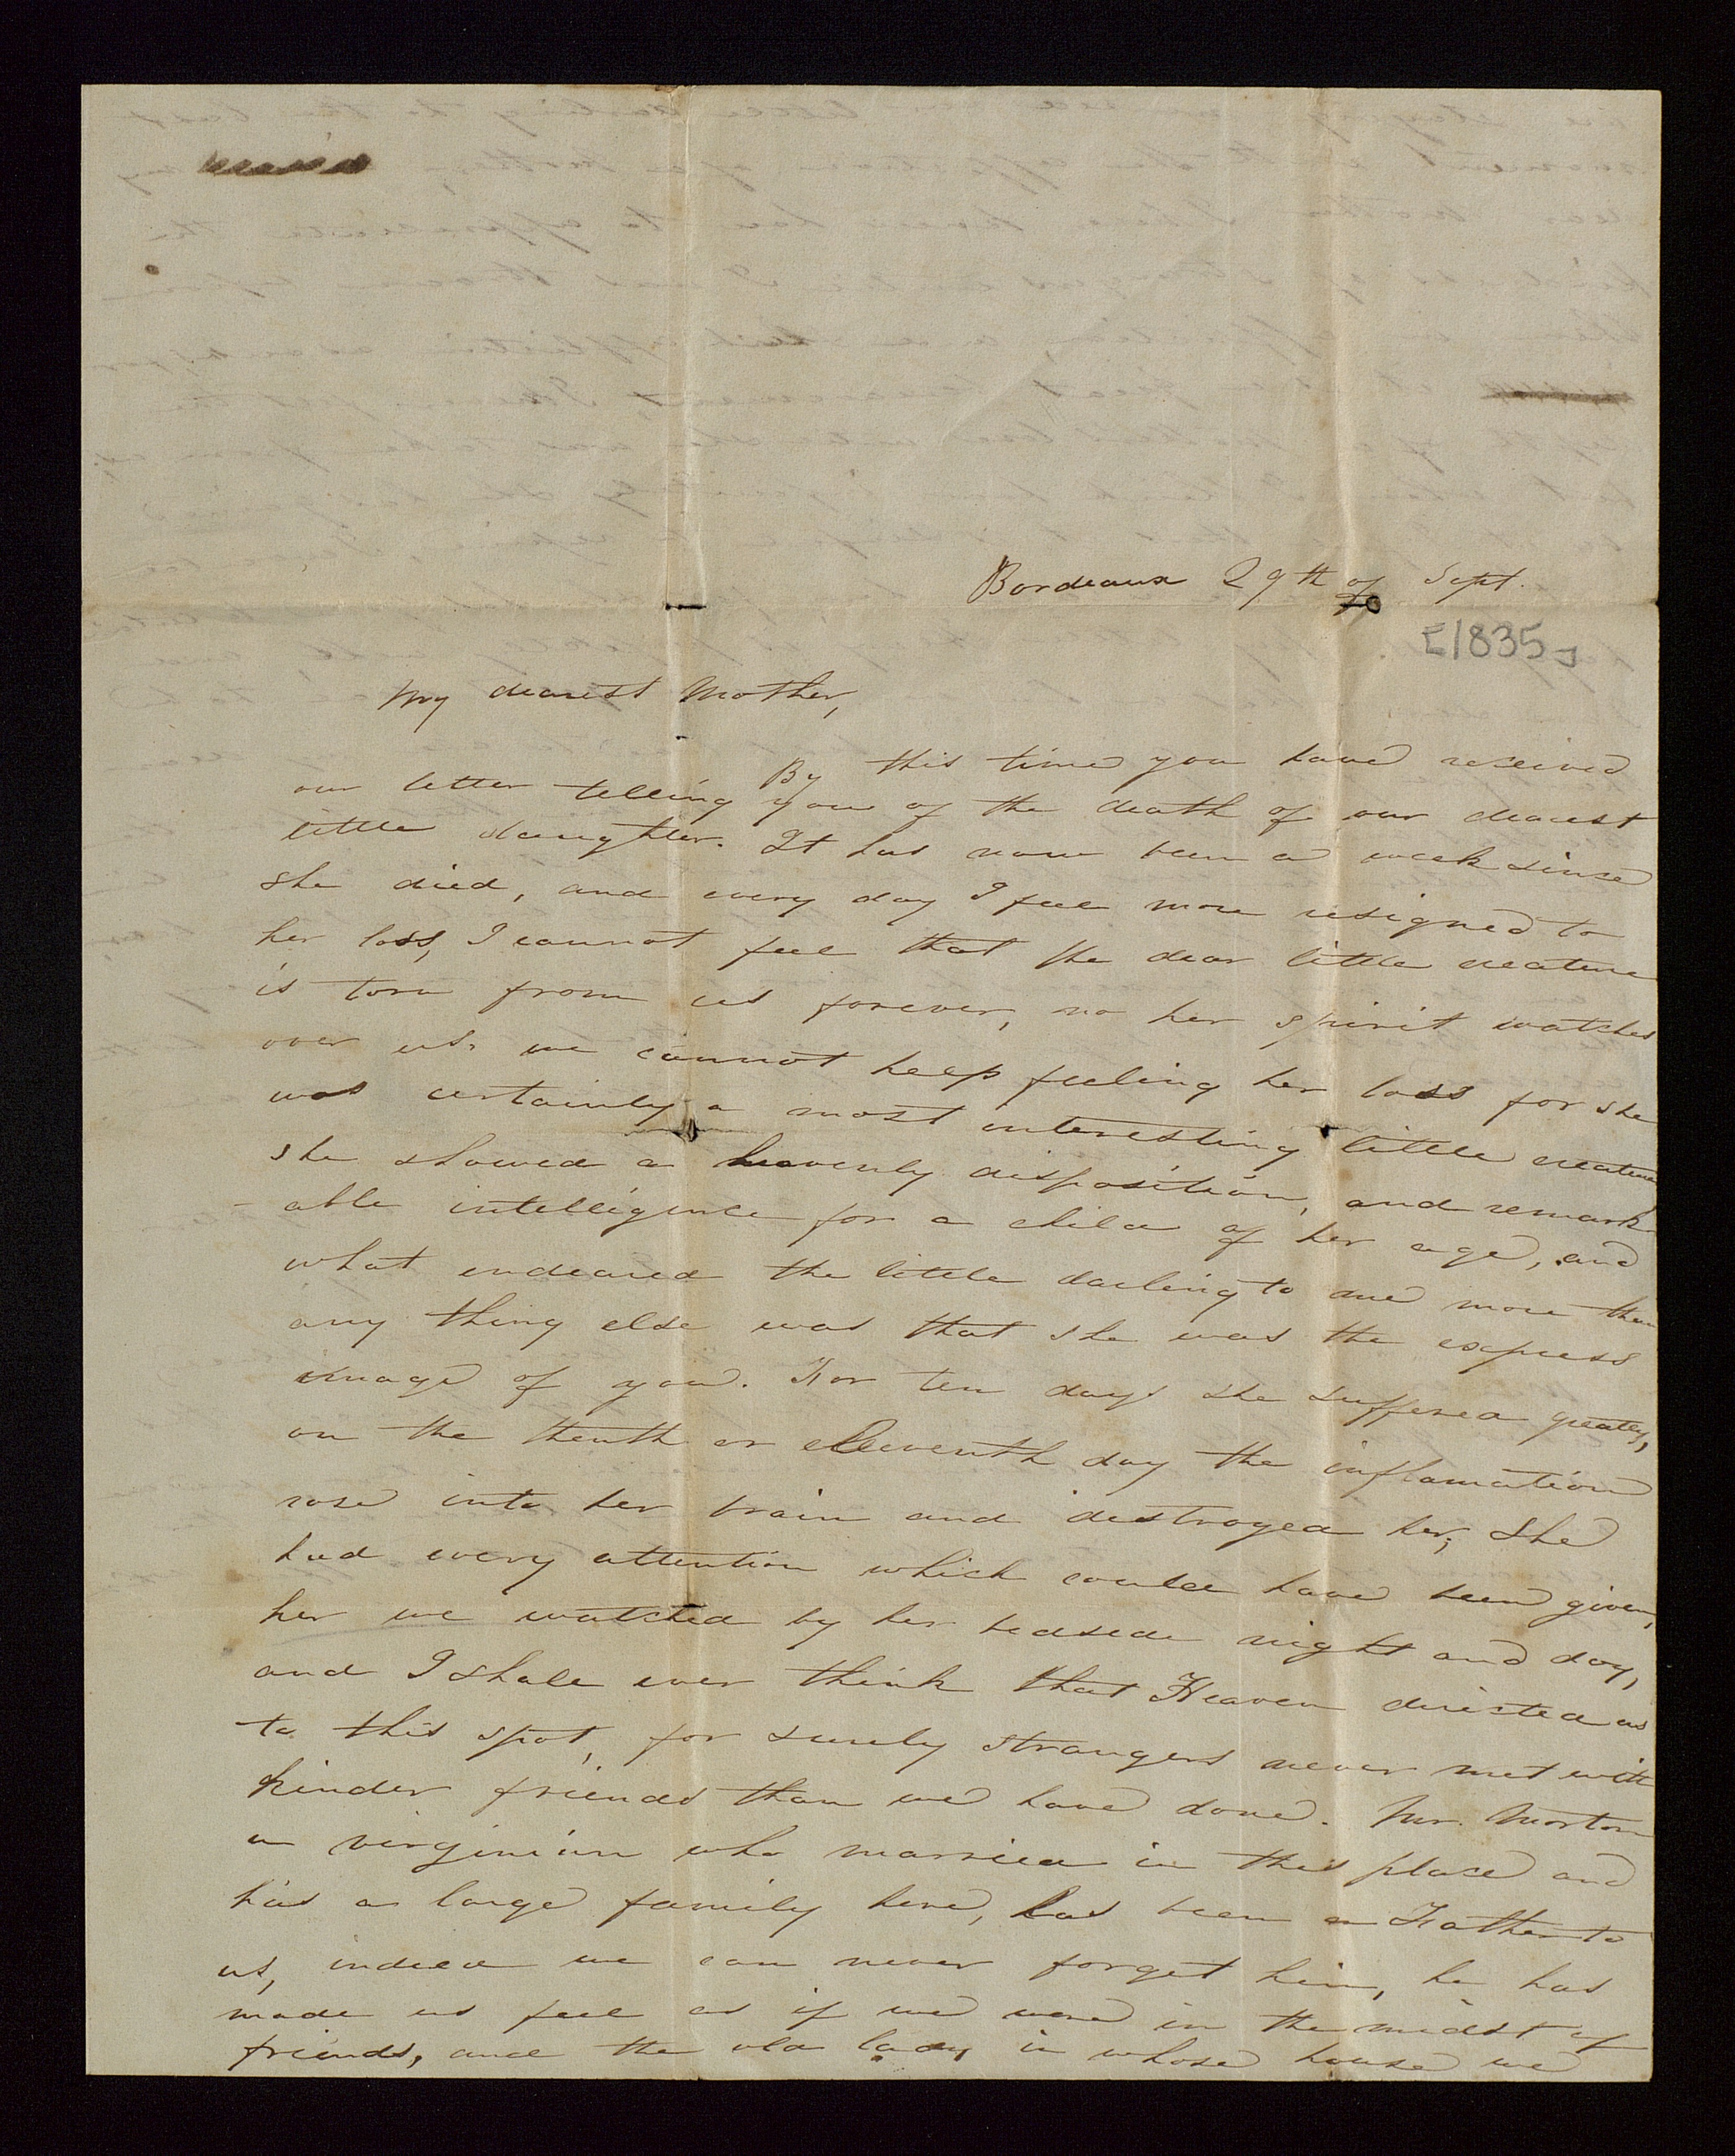 Bordeaux 29th of Sept.
[1835]
My dearest Mother,
By this time you have received
our letter telling you of the death of our dearest
little daughter. It has now been a week since
she died, and every day I feel more resigned to
her loss, I cannot feel that the dear little creature
is torn from us forever, no her spirit watches
over us. we cannot help feeling her loss for she
was certainly a most interesting little creature
she showed a heavenly disposition, and remark
-able intelligence for a child of her age, and
what endeared the little darling to me more than
any thing else was that she was the express
image of you. For ten days she suffered greatly,
on the thenth or elleventh day the inflamation
rose into her brain and destroyed her, She
had every attention which could have been given,
her we watched by her bedside night and day,
and I shall ever think that Heaven directed us
to this spot, for surely strangers never met with
kinder friends than we have done. Mr. Morton
a virginian who married in this place and
has a large family here, has been a Father to
us, indeed we can never forget him, he has
made us feel as if we were in the midst of
friends, and the old lady in whose house we